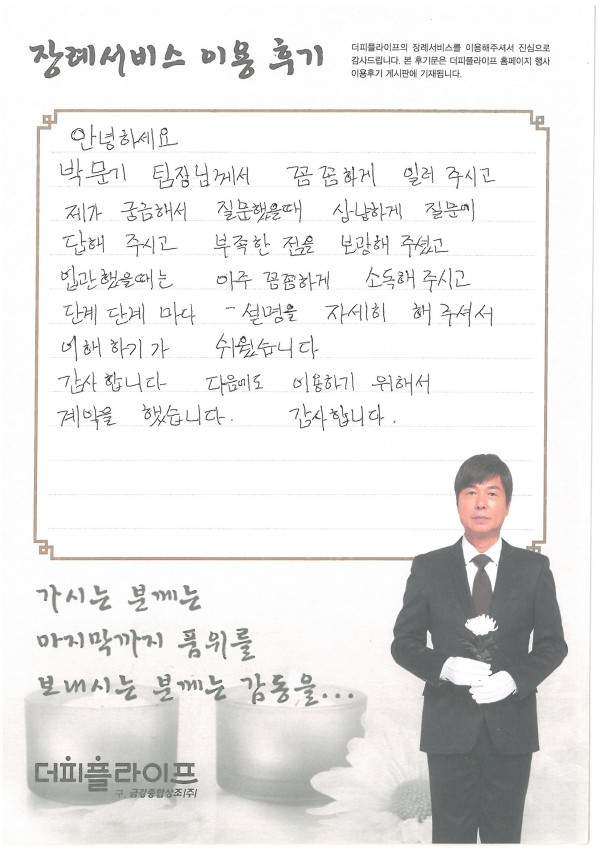 장례서비스 이용 후기
더피플라이프의 장례서비스를 이용해주셔서 진심으로
감사드립니다. 본 후기문은 더피플라이프 홈페이지 행사
이용후기 게시판에 기재됩니다.
안녕하세요
박문기 팀장님께서 꼼꼼하게 일러 주시고
제가 궁금해서 질문했을때 상냥하게 질문에
답해 주시고 부족한 점을 보강해 주셨고
입관했을때는 아주 꼼꼼하게 소독해 주시고
단계 단계 마다 설명을 자세히 해 주셔서
이해 하기가 쉬웠습니다
감사 합니다 다음에도 이용하기 위해서
계약을 했습니다. 감사합니다.
가시는 분께는
마지막까지 품위를
보내시는 분께는 감동을...
더피플라이프
구. 금강종합상조(주)